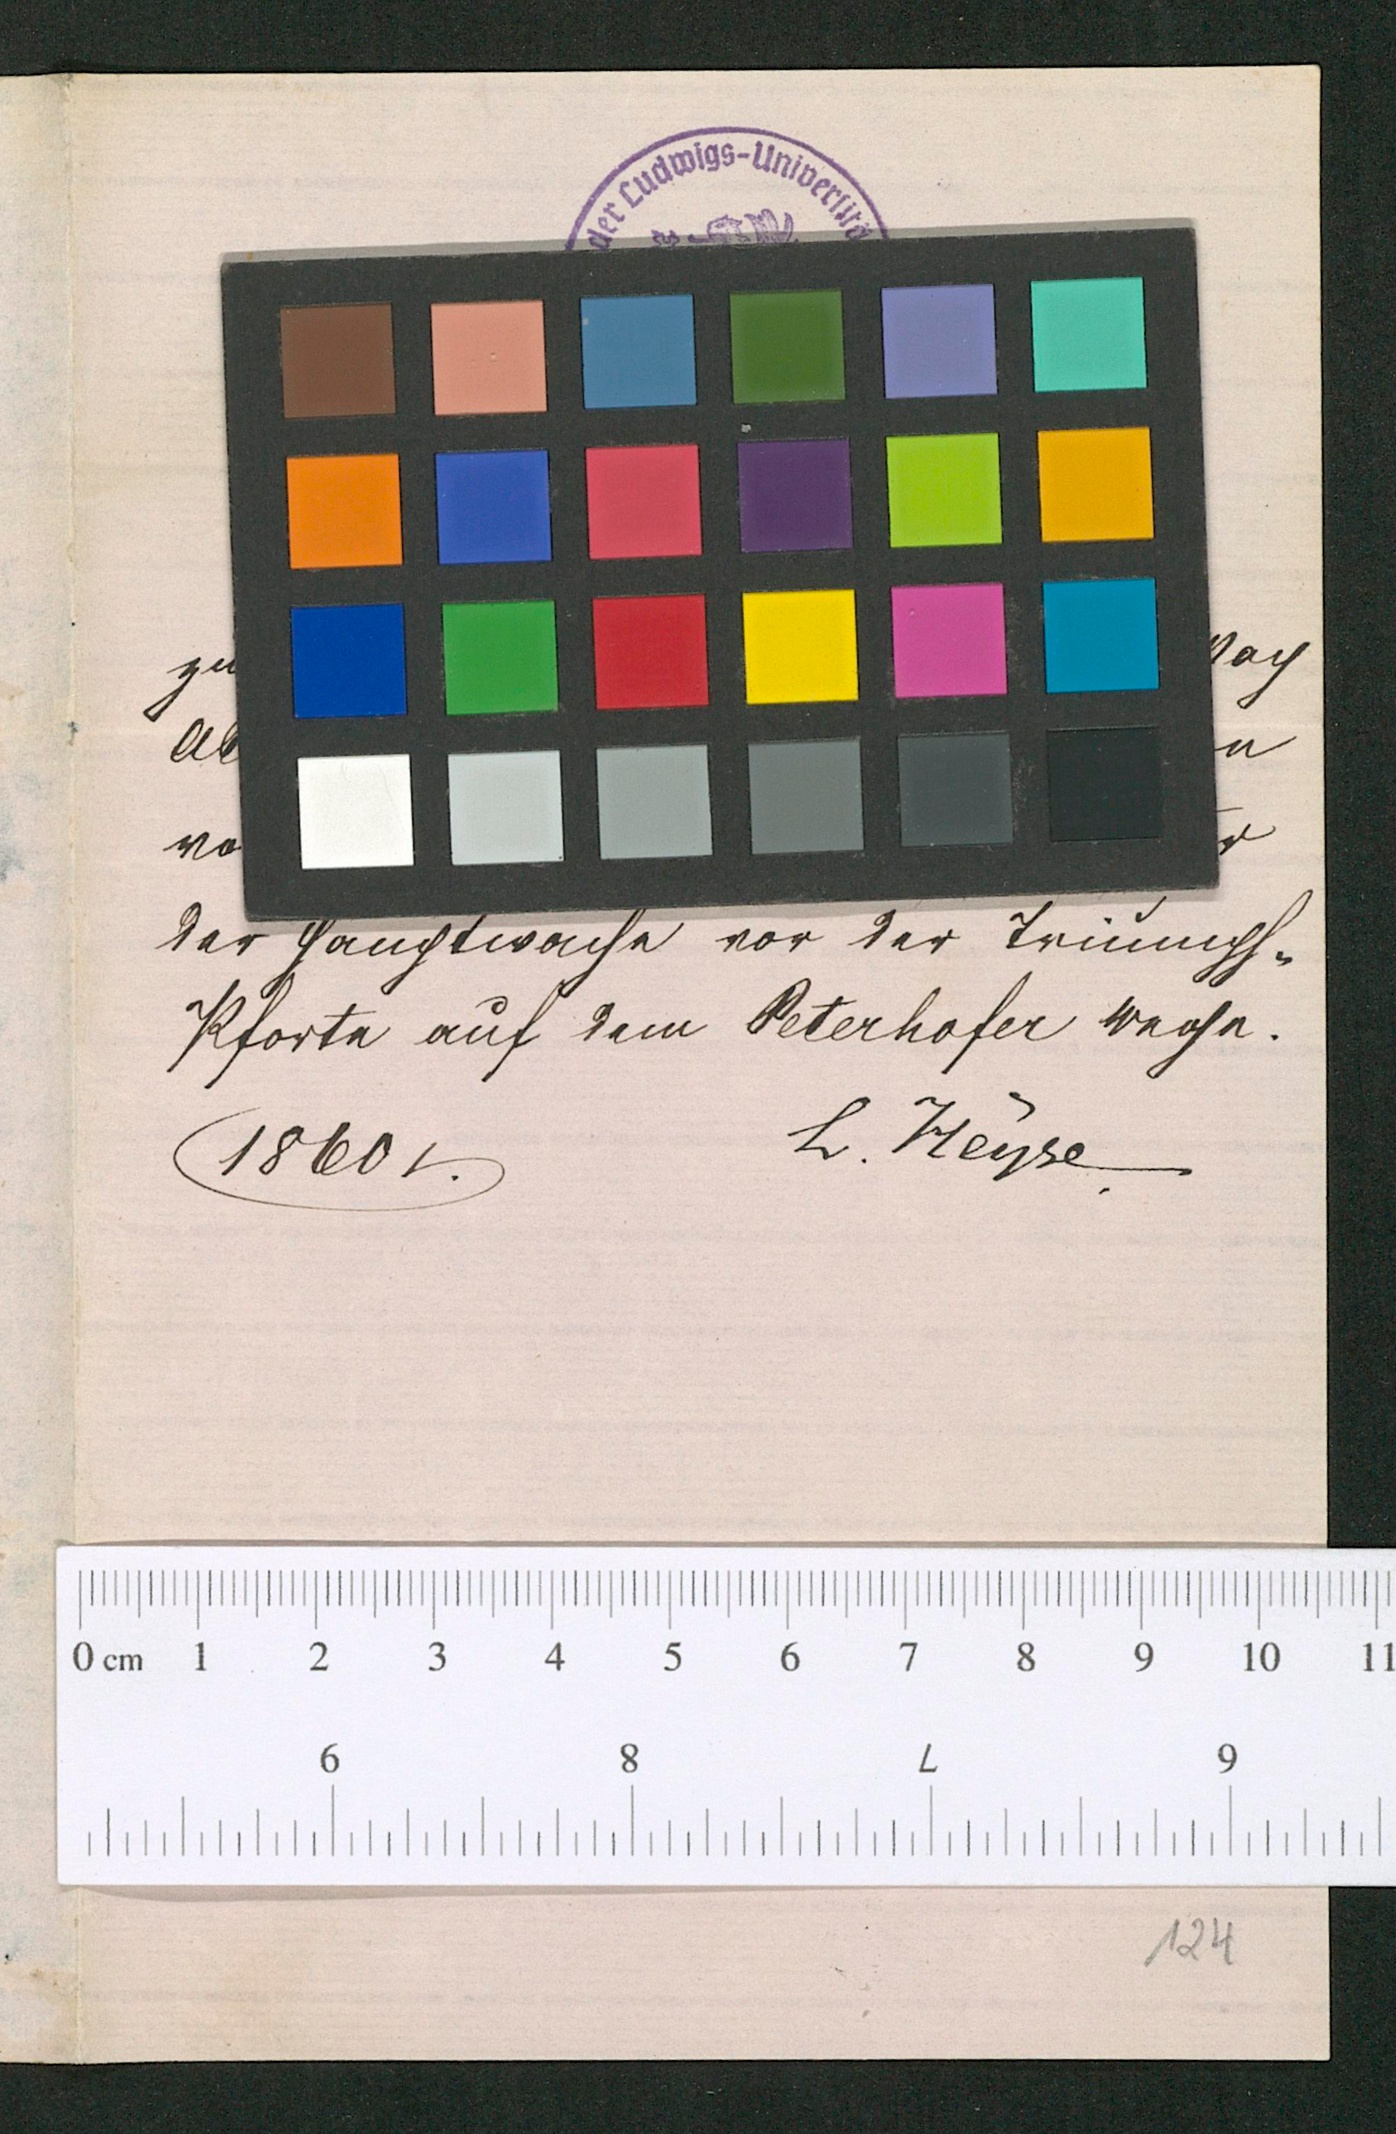 der Ludwigs-Universitä
zu
Ab
vo
der Hauptwache vor der Triumph-
Pforte auf dem Peterhofer Wege.
1860
L. Heyse
0 cm 1 2 3 4 5 6 7 8 9 10 11
9 8 7 6
124